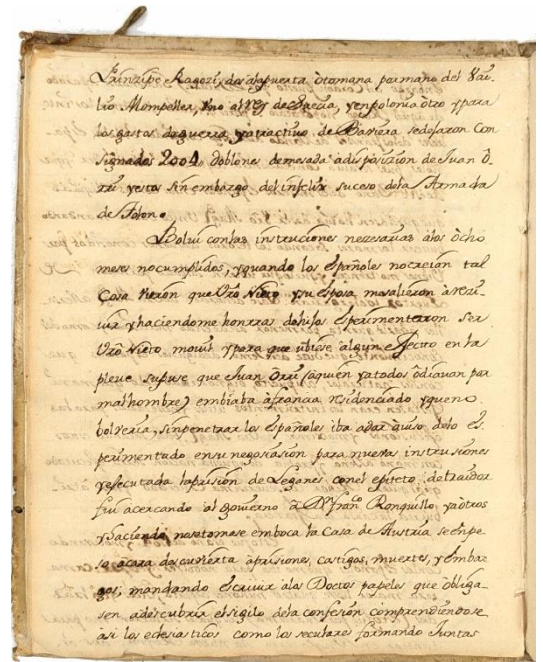 Prinzipe Ragozi, dos ala puerta òtomana por mano del Vai-
lio Mompeller, Uno al Rey de Suecia, y en polonia òtro y para
los gastos de guerra y atractivo de Baviera se dejaron Con
signados 2004 doblones de mesada a disposizion de Juan O-
rri y esto sin embargo del infeliz suceso de la Armada
de Tolon.
Bolui con las instruciones nezesarias a los ôcho
meses no cumplidos, y quando los españoles no creian tal
Cosa vieron que Vrô Nieto y su esposa me salieron à reziv
uir y haciendome honrras de hijos esperimentaron ser
Vrô Nieto, mouil y para que ubiese algun efecto en la
pleue supuse que Juan Orri (a quien ya todos ôdiauan por
mal hombre) embiaba à francia residenciado y que no
bolveria, sin penetrar los españoles iba a dar auiso delo es-
perimentado en su negosiasion para nuevas instrusiones
y esecutada la prision de Leganes con el epiteto de traidor
fui acercando al Govierno à Dn. franco. Ronquillo, y a òtros
y haciendo no se tomase em boca la Casa de Austria se enpe-
so a cara descuvierta a prisiones, castigos, muertes, y embar-
gos, mandando escriuir a los Doctos papeles que obliga-
sen a descubrir el sigilo de la confesion comprendiendose
asi los eclesiasticos como los seculares formando Juntas